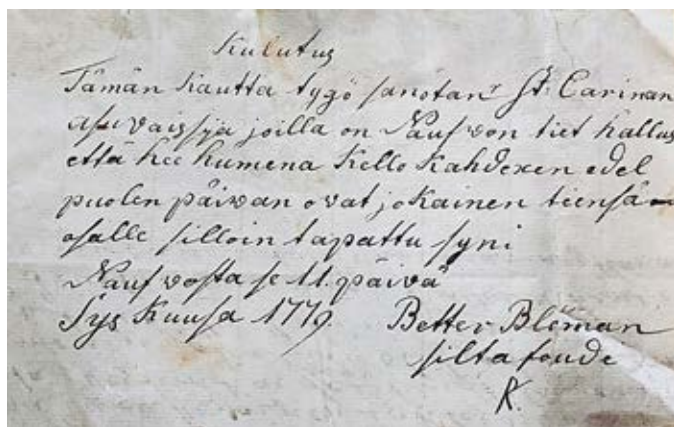 Kulutus
Tämän Kautta tygö sanotan St Carinan
asuvaissia joilla on Naufvon tiet hallus
että hee humena Kello Kahdexen edel
puolen päivan ovat joKainen tiensä
osalle silloin tapattu syni
Naufvosta se 11. päivä
Sys Kuusa 1779. Better Bleman
silta foude
R.